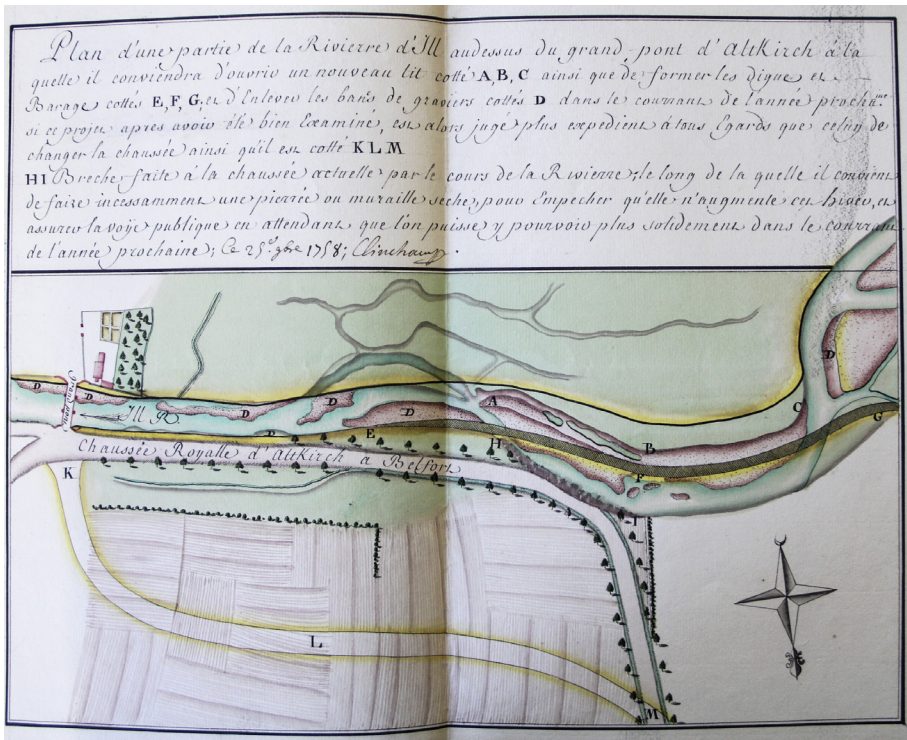 Plan d'une partie de la Rivierre d'Ill audessus du grand pont d'Altkirch à la
quelle il conviendra d'ouvrir un nouveau lit cotté A, B, C ainsi que de former les digue et
Barage cottés E, F, G, et d'Enlever les bancs de graviers cottés D dans le courrant de l'année prochne
si ce projet apres avoir été bien Examiné, est alors jugé plus expedient à tous Egards que celuy de
changer la chaussée ainsi qu'il est cotté KLM
HI Breche faite à la chaussée actuelle par le cours de la Rivierre; le long de la quelle il convient
de faire incessamment une pierrée ou muraille seche, pour Empecher qu'elle n'augmente cet hiver, et
assurer la voye publique en attendant que l'on puisse y pourvoir plus solidement dans le courrant
de l'année prochaine; Ce 25 gbre 1758; Clinchamp.
D
D
D
Grand Pont
D
Ill R.
D
D
D
A
C
G
E
H
B
F
Chaussée Royalle d'Altkirch a Belfort
K
I
L
M